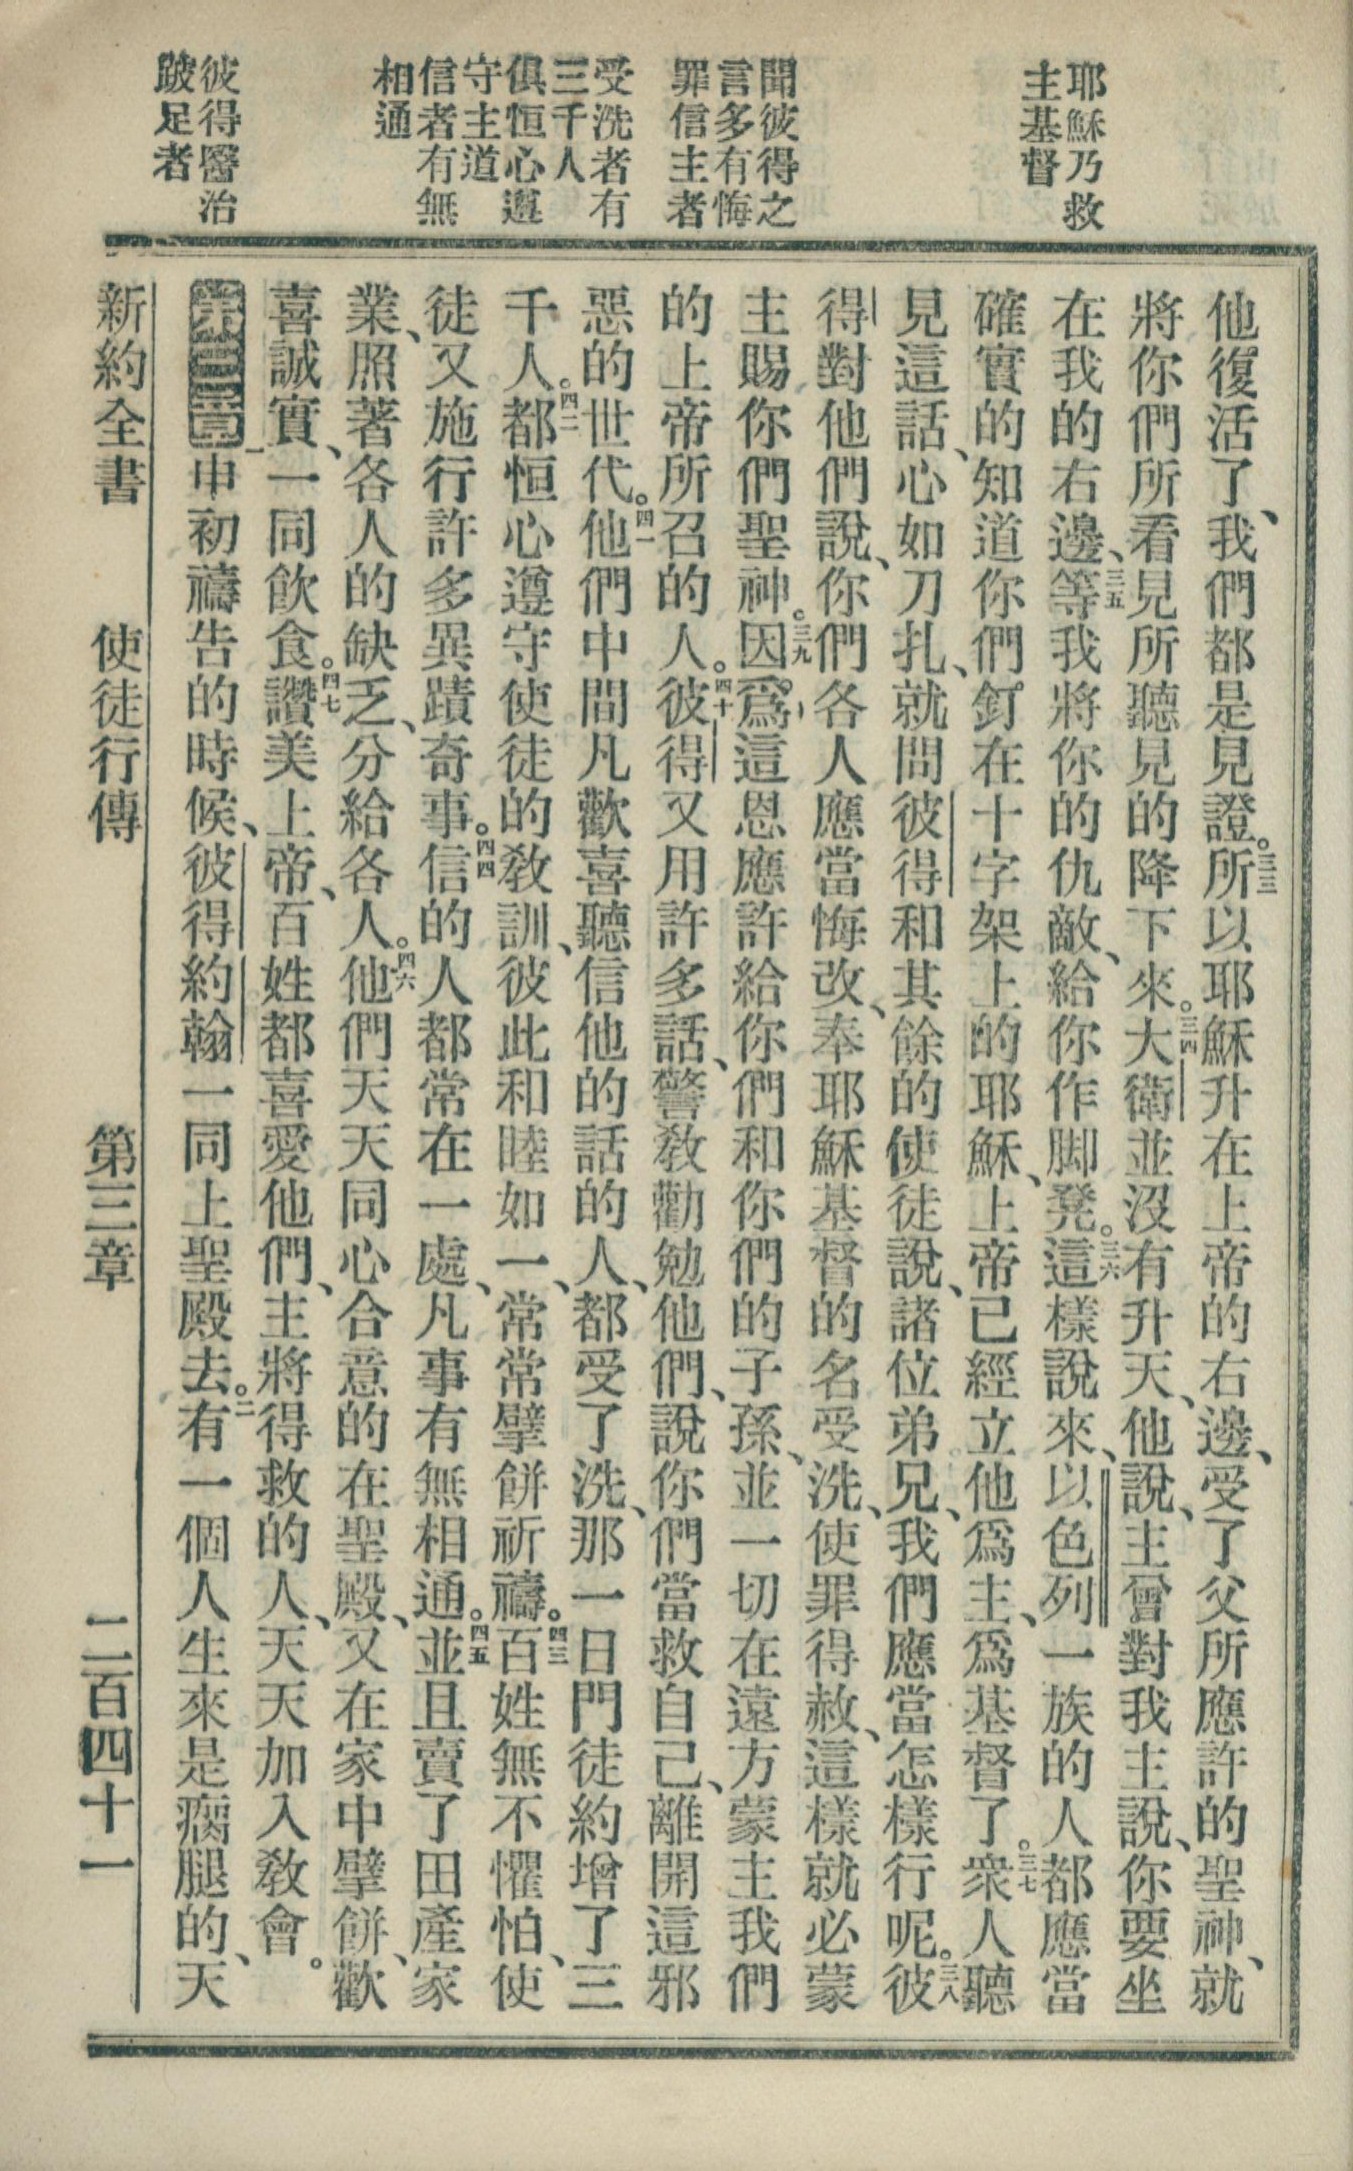 耶穌乃救
主基督
聞彼得之
言多有悔
罪信主者
受洗者有
三千人
俱恒心遵
守主道
信者有無
相通
彼得醫治
跛足者
他復活了、我們都是見證。三三所以耶穌升在上帝的右邊、受了父所應許的聖神、就
將你們所看見所聽見的降下來。三四大衛並沒有升天、他說、主曾對我主說、你要坐
在我的右邊、三五等我將你的仇敵、給你作脚凳。三六這樣說來、以色列一族的人都應當
確實的知道你們釘在十字架上的耶穌、上帝已經立他爲主、爲基督了。三七衆人聽
見這話、心如刀扎、就問彼得和其餘的使徒說、諸位弟兄、我們應當怎樣行呢。三八彼
得對他們說、你們各人應當悔改、奉耶穌基督的名受洗、使罪得赦、這樣就必蒙
主賜你們聖神。三九因爲這恩應許給你們和你們的子孫、並一切在遠方蒙主我們
的上帝所召的人。四十彼得又用許多話、警敎勸勉他們、說你們當救自己、離開這邪
惡的世代。四一他們中間凡歡喜聽信他的話的人、都受了洗、那一日門徒約增了三
千人。四二都恒心遵守使徒的敎訓、彼此和睦如一、常常擘餅祈禱。四三百姓無不懼怕、使
徒又施行許多異蹟奇事。四四信的人都常在一處、凡事有無相通。四五並且賣了田產家
業、照著各人的缺乏、分給各人。四六他們天天同心合意的在聖殿、又在家中擘餅、歡
喜誠實、一同飲食。四七讚美上帝、百姓都喜愛他們、主將得救的人、天天加入敎會。
第三章一申初禱告的時候、彼得約翰一同上聖殿去。二有一個人生來是瘸腿的、天
新約全書　使徒行傳　第三章　二百四十一